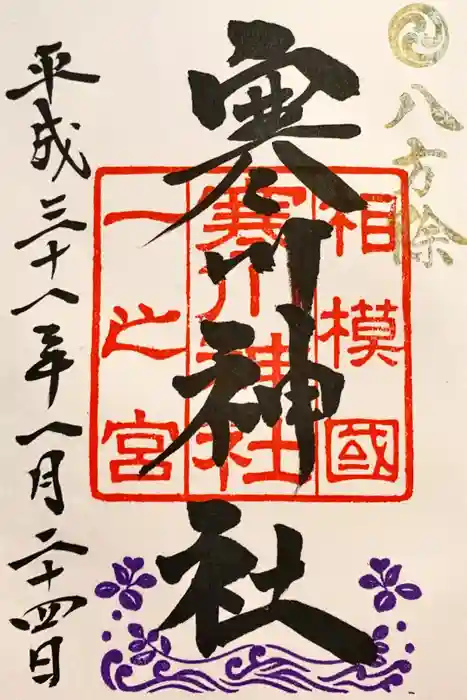 八方除
寒川神社
相模國
寒川神社
一之宮
平成二十八年八月二十四日